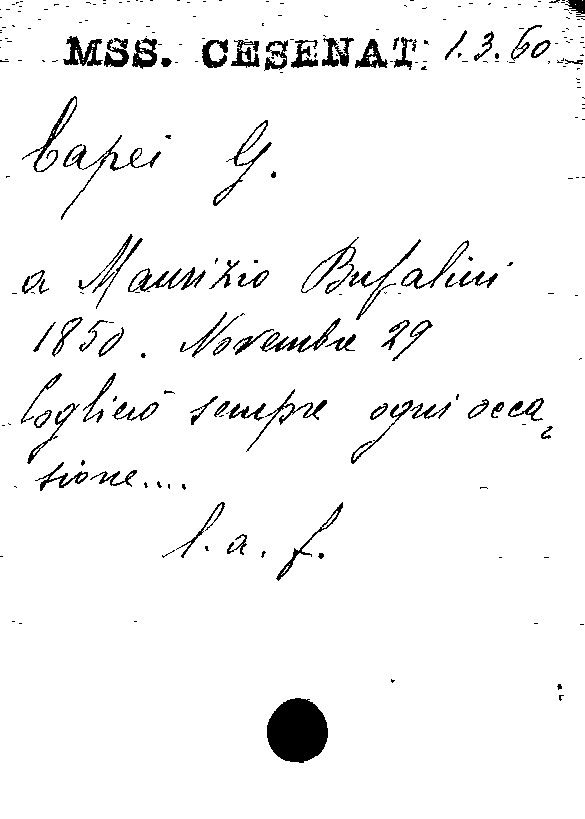 MSS. CESENAT. 1.3.60
Capei G.
a Maurizio Bufalini
1850. Novembre 29
Coglierò sempre ogni occa
sione....
l. a. f.